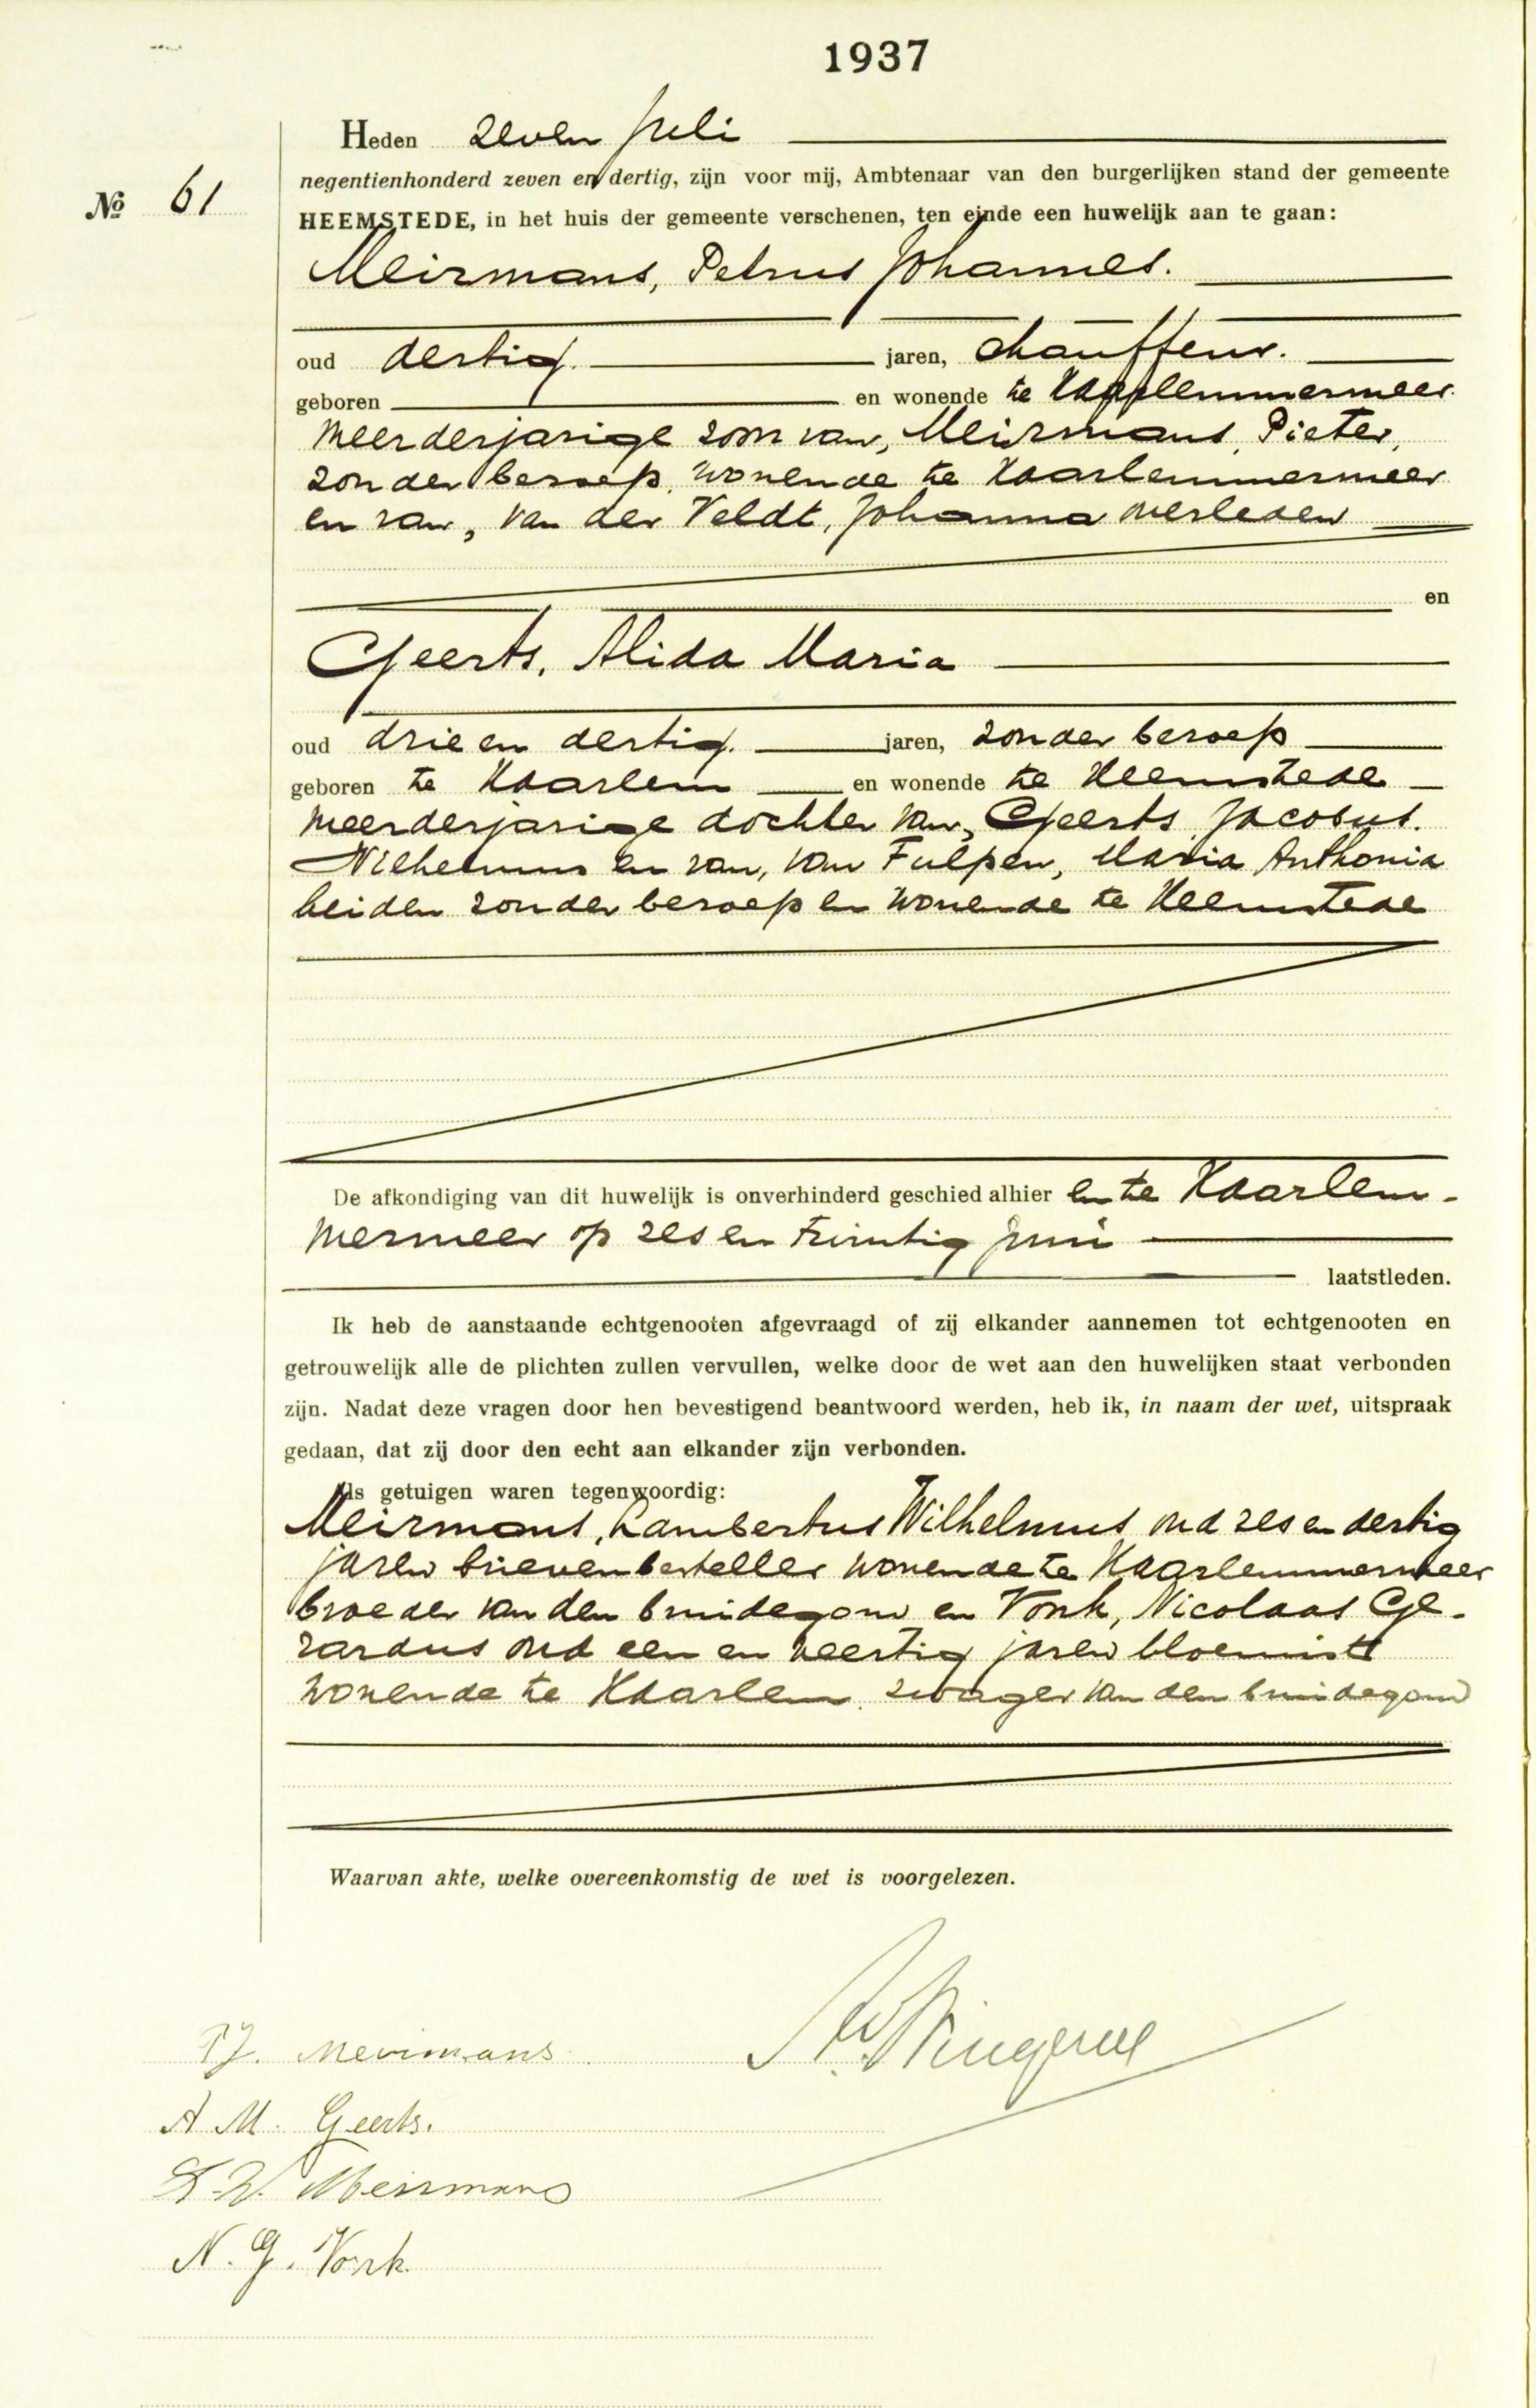 1937
Heden zeven Juli
negentienhonderd zeven en dertig, zijn voor mij, Ambtenaar van den burgerlijken stand der gemeente
№ 61
HEEMSTEDE, in het huis der gemeente verschenen, ten einde een huwelijk aan te gaan:
Meirmans, Petrus Johannes.
oud dertig. jaren, chauffeur.
geboren en wonende te Haarlemmermeer
meerderjarige zoon van, Meirmans, Pieter,
zonder beroep, wonende te Haarlemmermeer
en van, van der Veldt, Johanna overleden
en
Geerts, Alida Maria
oud drie en dertig. jaren, zonder beroep
geboren te Haarlem en wonende te Heemstede
meerderjarige dochter van, Geerts, Jacobus.
Wilhelmus en van, van Fulpen, Maria Anthonia
beiden zonder beroep en wonende te Heemstede
De afkondiging van dit huwelijk is onverhinderd geschied alhier en te Haarlem-
mermeer op zes en twintig Juni
laatstleden.
Ik heb de aanstaande echtgenooten afgevraagd of zij elkander aannemen tot echtgenooten en
getrouwelijk alle de plichten zullen vervullen, welke door de wet aan den huwelijken staat verbonden
zijn. Nadat deze vragen door hen bevestigend beantwoord werden, heb ik, in naam der wet, uitspraak
gedaan, dat zij door den echt aan elkander zijn verbonden.
Als getuigen waren tegenwoordig:
Meirmans, Lambertus Wilhelmus, oud zes en dertig
jaren brievenbesteller wonende te Haarlemmermeer
broeder van den bruidegom en Vonk, Nicolaas Ge-
rardus oud een en veertig jaren bloemist
wonende te Haarlem, zwager van den bruidegom
Waarvan akte, welke overeenkomstig de wet is voorgelezen.
P J. Meirmans
A M. Geerts.
L. W. Meirmans
N. G. Vonk